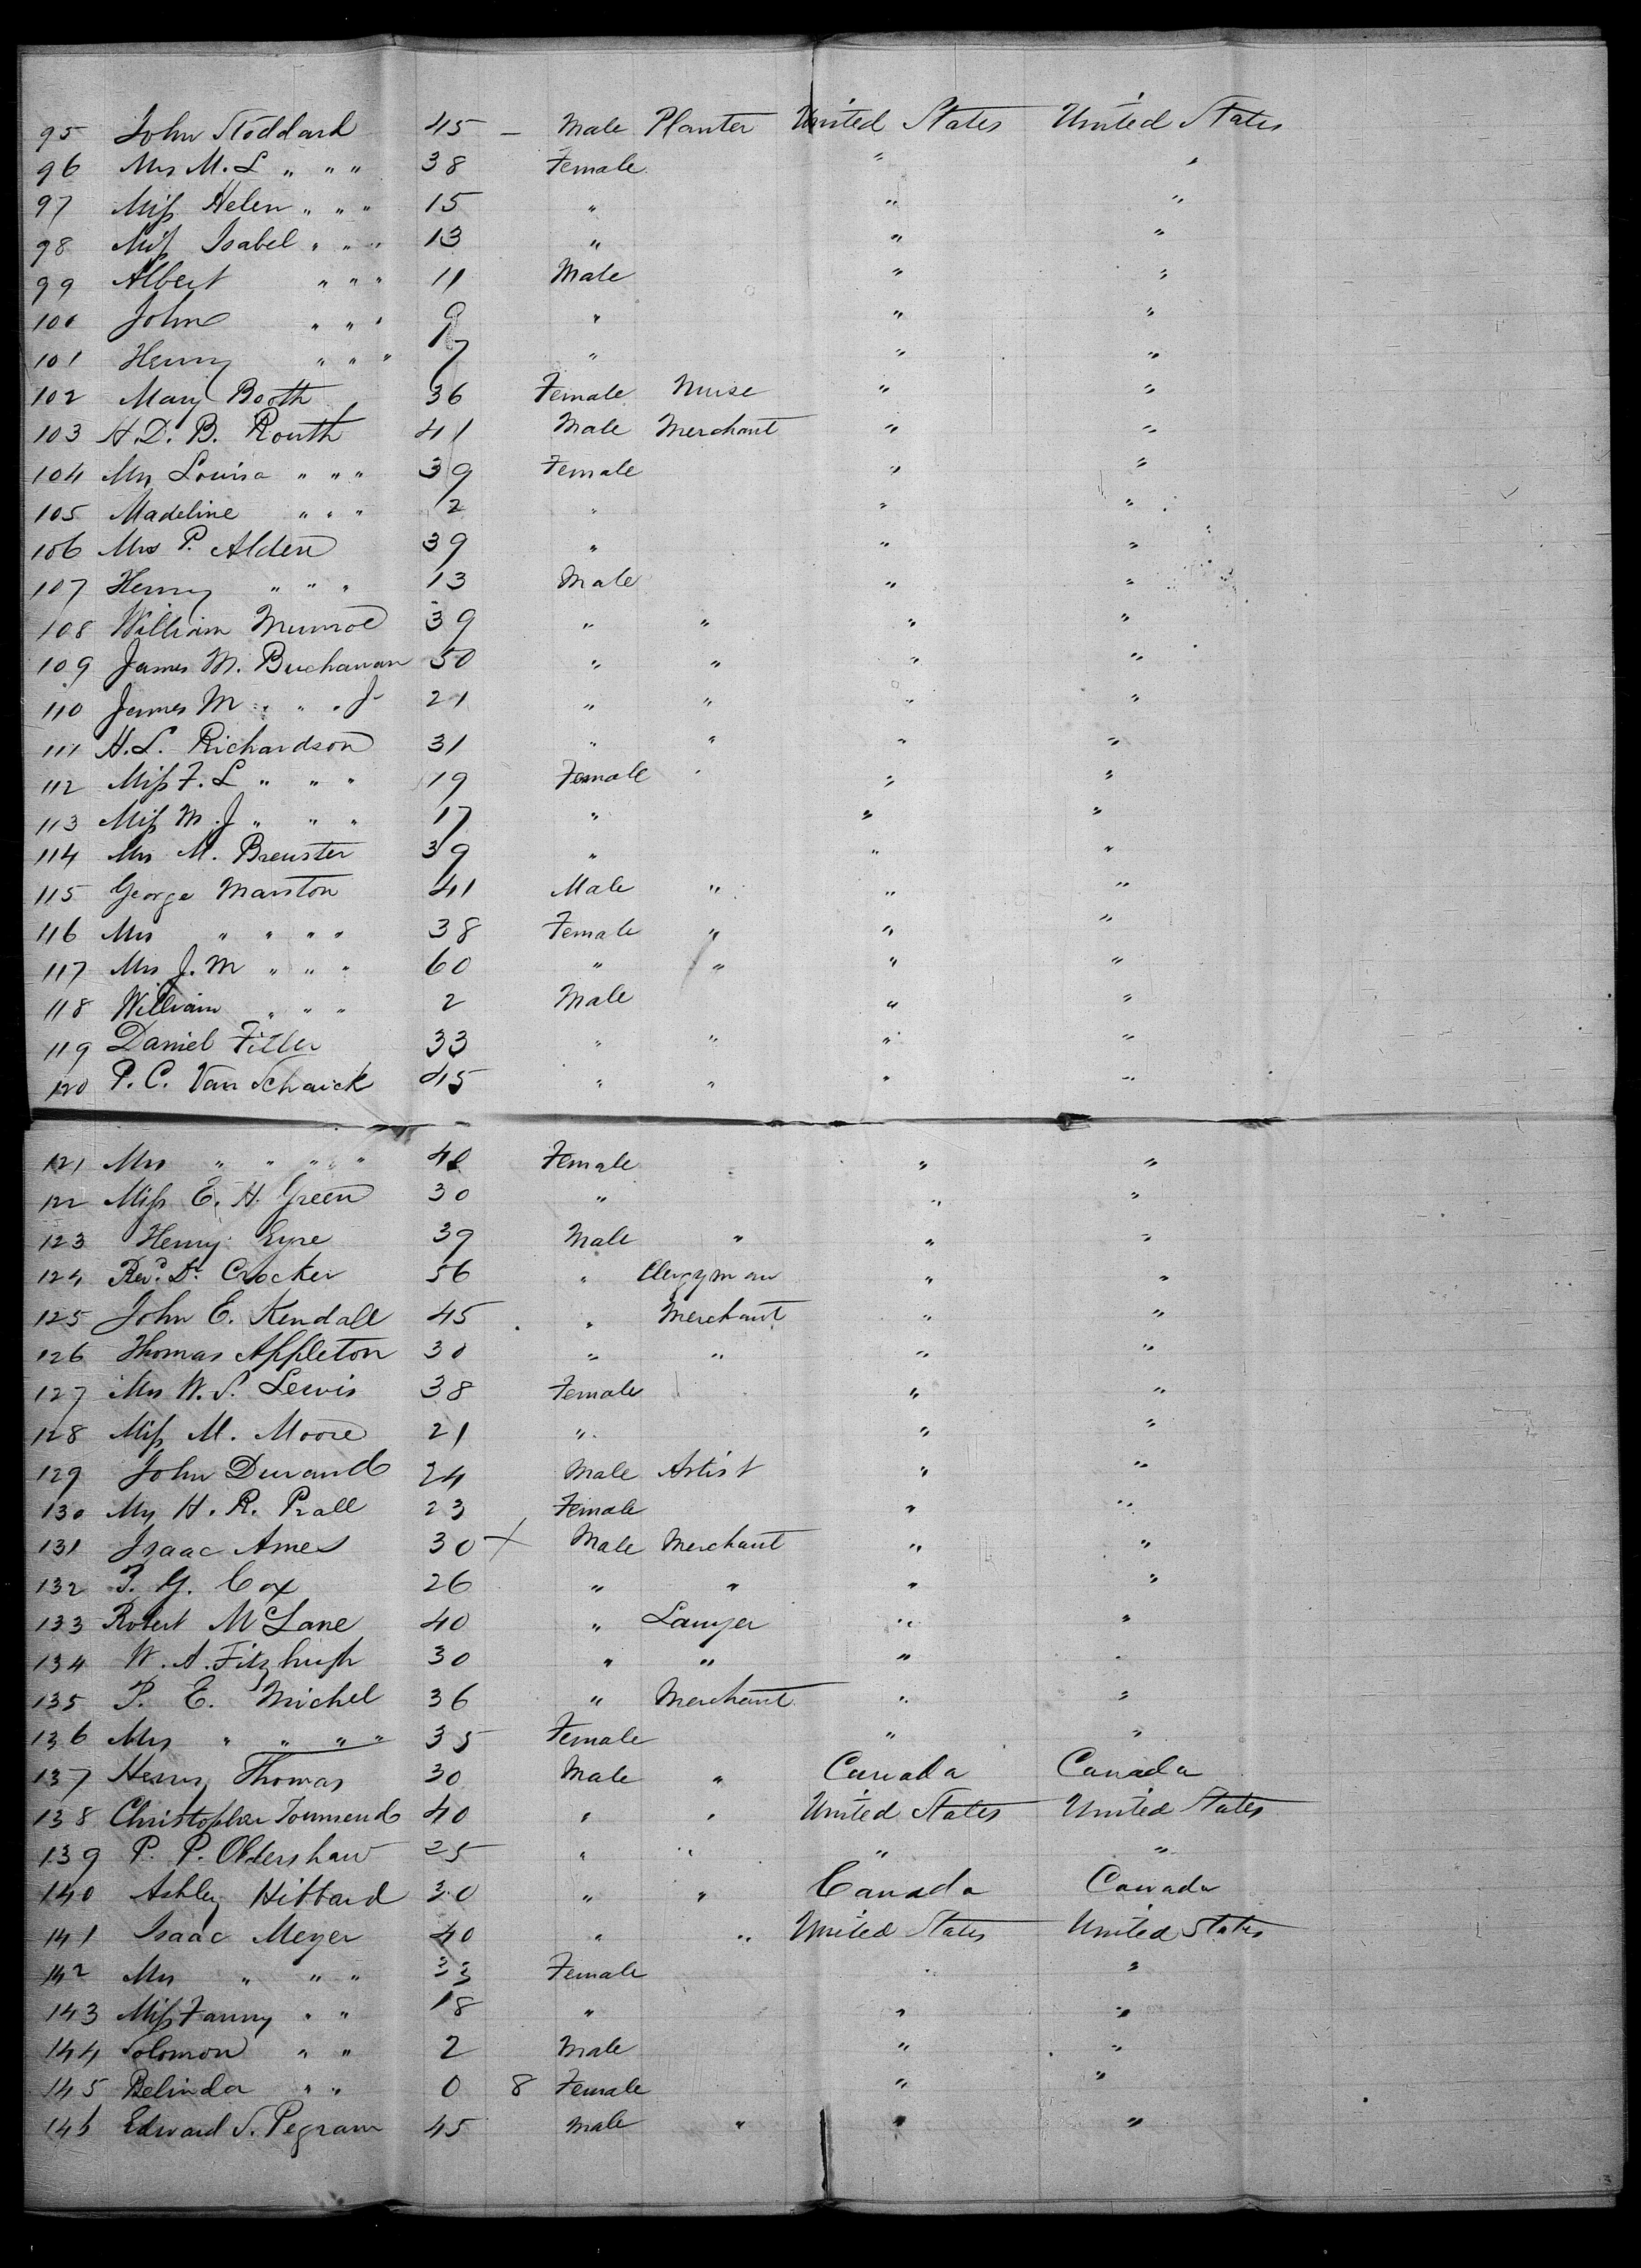 95 John Stoddard 45 – Male Planter United States United States
96 Mrs M. L " " " 38 Female " "
97 Miss Helen " " " 15 " " "
98 Miss Isabel " " " 13 " " "
99 Albert " " " 11 Male " "
100 John " " " 9 " " "
101 Henry " " " 7 " " "
102 Mary Booth 36 Female Nurse " "
103 H. D. B. Routh 41 Male Merchant " "
104 Mrs Louisa " " " 39 Female " "
105 Madeline " " " 2 " " "
106 Mrs P. Alden 39 " " "
107 Henry " " " 13 Male " "
108 William Munroe 39 " " " "
109 James M. Buchanan 50 " " " "
110 James M " " " Jr 21 " " " "
111 H. L. Richardson 31 " " " "
112 Miss F. L " " " 19 Female " " "
113 Miss M. J " " " 17 " " "
114 Mrs M. Brewster 39 " " "
115 George Marston 41 Male " " "
116 Mrs " " " " 38 Female " " "
117 Mrs J. M " " " 60 " " " "
118 William " " " 2 Male " "
119 Daniel Fitler 33 " " " "
120 P. C. Van Schaick 45 " " " "
121 Mrs " " " " " 40 Female " "
122 Miss E. H. Green 30 " " "
123 Henry Eyre 39 Male " " "
124 Revd. Dr. Crocker 56 " Clergyman " "
125 John E. Kendall 45 " Merchant " "
126 Thomas Appleton 30 " " " "
127 Mrs W. S. Lewis 38 Female " "
128 Miss M. Moore 21 " " "
129 John Durand 24 Male Artist " "
130 Mrs H. R. Prall 23 Female " "
131 Isaac Ames 30 + Male Merchant " "
132 T. G. Cox 26 " " " "
133 Robert McLane 40 " Lawyer " "
134 W. A. Fitzhugh 30 " " " "
135 P. E. Michel 36 " Merchant " "
136 Mrs " " " " 35 Female " "
137 Henry Thomas 30 Male " Canada Canada
138 Christopher Townsend 40 " " United States United States
139 P. P. Oldershaw 25 " " " "
140 Ashley Hibbard 30 " " Canada Canada
141 Isaac Meyer 40 " " United States United States
142 Mrs " " " 33 Female " "
143 Miss Fanny " " 18 " " "
144 Solomon " " 2 Male " "
145 Belinda " " 0 8 Female " "
146 Edward S. Pegram 45 Male " " "